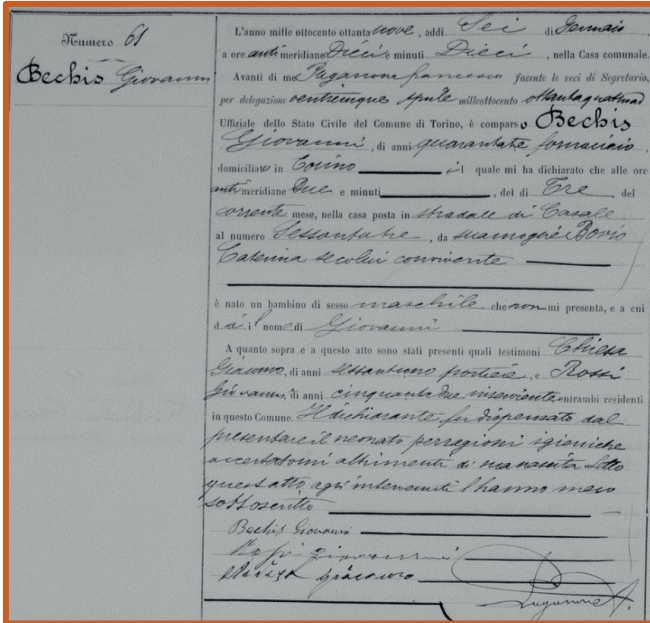 Numero 61
Bechis Giovanni
L'anno mille ottocento ottantanove, addì Sei di Gennaio,
a ore antimeridiane Dieci e minuti Dieci, nella Casa comunale.
Avanti di me Paganone Francesco facente le veci di Segretario,
per delegazione ventitinque Aprile milleottocento ottantaquattro
Uffiziale dello Stato Civile del Comune di Torino, è comparso Bechis
Giovanni, di anni quarantatre fornaciaio,
domiciliato in Torino il quale mi ha dichiarato che alle ore
antimeridiane Due e minuti, del dì Tre del
corrente mese, nella casa posta in stradale di Casale
al numero Sessantatre, da sua moglie Bovio
Caterina seco lui convivente
è nato un bambino di sesso maschile che non mi presenta, e a cui
dà il nome di Giovanni
A quanto sopra e a questo atto sono stati presenti quali testimoni Chiesa
Giacomo, di anni sessantuno portiere, e Rossi
Giovanni, di anni cinquantadue inserviente, entrambi residenti
in questo Comune. Il dichiarante fu dispensato dal
presentare il neonato per ragioni igieniche
accertatomi altrimenti di sua nascita. Letto
quest'atto agli intervenuti l'hanno meco
sottoscritto
Bechis Giovanni
Rossi Giovanni
Chiesa Giacomo
Paganone F.